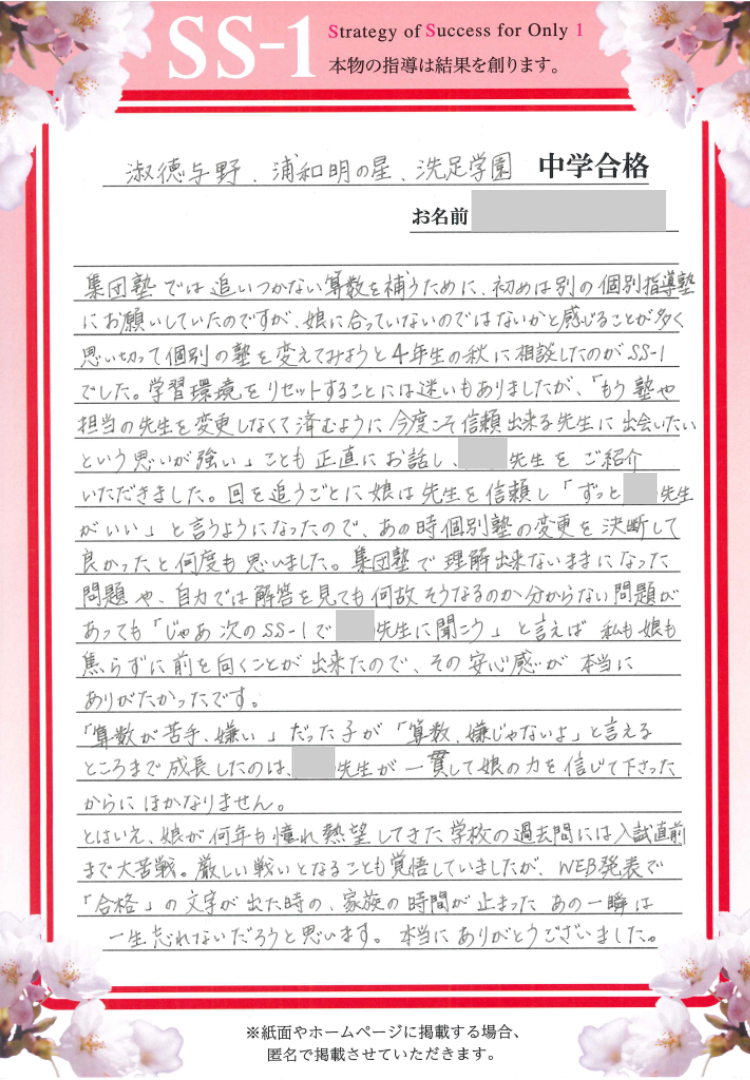 SS-1
Strategy of Success for Only 1
本物の指導は結果を創ります。
淑徳与野、浦和明の星、洗足学園 中学合格
お名前
集団塾では追いつかない算数を補うために、初めは別の個別指導塾
にお願いしていたのですが、娘に合っていないのではないかと感じることが多く
思い切って個別の塾を変えてみようと4年生の秋に相談したのがSS-1
でした。学習環境をリセットすることには迷いもありましたが、「もう塾や
担当の先生を変更しなくて済むように今度こそ信頼出来る先生に出会いたい
という思いが強い」ことも正直にお話し、 先生をご紹介
いただきました。回を追うごとに娘は先生を信頼し「ずっと 先生
がいい」と言うようになったので、あの時個別塾の変更を決断して
良かったと何度も思いました。集団塾で理解出来ないままになった
問題や、自力では解答を見ても何故そうなるのか分からない問題が
あっても「じゃあ次のSS-1で 先生に聞こう」と言えば私も娘も
焦らずに前を向くことが出来たので、その安心感が本当に
ありがたかったです。
「算数が苦手、嫌い」だった子が「算数、嫌じゃないよ」と言える
ところまで成長したのは、 先生が一貫して娘の力を信じて下さった
からにほかなりません。
とはいえ、娘が何年も憧れ熱望してきた学校の過去問には入試直前
まで大苦戦。厳しい戦いとなることも覚悟していましたが、WEB発表で
「合格」の文字が出た時の、家族の時間が止まったあの一瞬は
一生忘れないだろうと思います。本当にありがとうございました。
※紙面やホームページに掲載する場合、
匿名で掲載させていただきます。